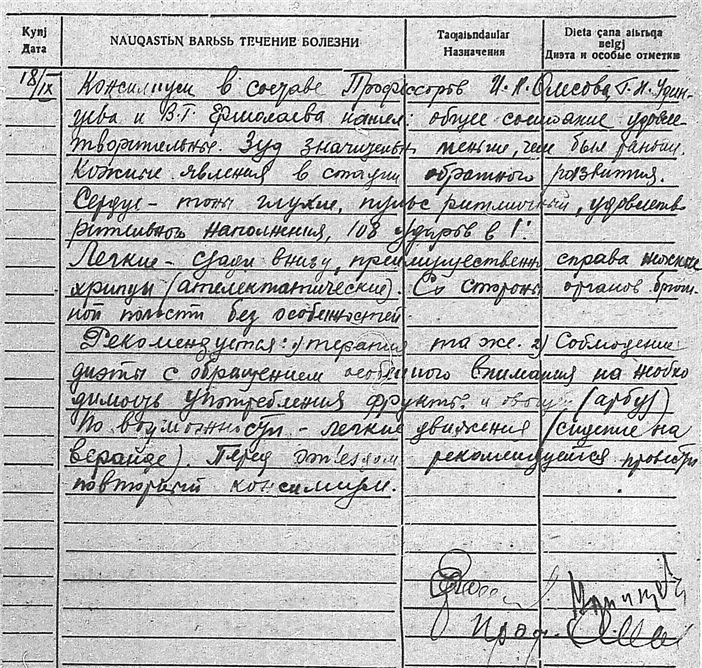 Kynj
Дата
NAUQASTЬN BARЬSЬ ТЕЧЕНИЕ БОЛЕЗНИ
Taqajьndaular
Назначения
Dieta çana aiьrьqa
belgj
Диэта и особые отметки
18/IX
Консилиум в составе Профессоров И.И. Г.Н. Удин-
цева и В.Г. Ермолаева нашел: общее состояние удовле-
творительные. Зуд значительно меньше, чем был раньше.
Кожные явления в стадии обратного развития.
Сердце - тоны глухие, пульс ритмичный, удовлетв
рительного наполнения, 108 ударов в 1'.
Легкие - сзади внизу, преимущественно справа
хрипы (ателектатические). Со стороны органов брюш-
ной полости без особенностей.
Рекомендуется: 1) терапия та же. 2) Соблюдение
диэты с обращением особенного внимания на необхо
димость употребления фруктов и овощей (арбуз)
По возможности - легкие движения (сидение на
веранде). Перед отъездом рекомендуется провести
повторный консилиум.
Проф.